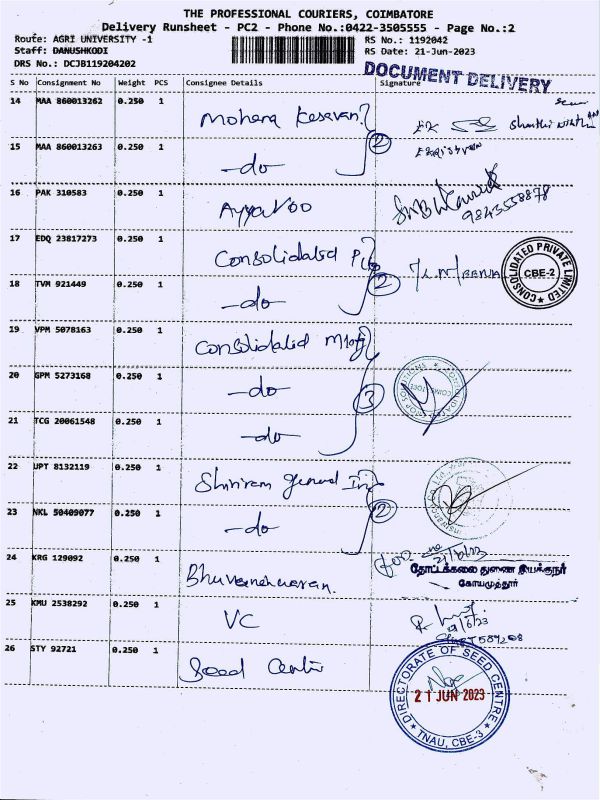 THE PROFESSIONAL COURIERS, COIMBATORE
Delivery Runsheet - PC2 - Phone No.:0422-3505555 - Page No.:2
Route: AGRI UNIVERSITY -1
RS No.: 1192042
Staff: DANUSHKODI
RS Date: 21-Jun-2023
DRS No.: DCJB119204202
DOCUMENT DELIVERY
S No Consignment No Weight PCS Consignee Details Signature
14 MAA 860013262 0.250 1 Mohana Kesavan
15 MAA 860013263 0.250 1 -do- 2
16 PAK 310583 0.250 1 Ayyavoo 9843558878
17 EDQ 23817273 0.250 1 Consolidated
CONSOLIDATED PRIVATE LIMITED
CBE-2
18 TVM 921449 0.250 1 -do- 2
19 VPM 5078163 0.250 1 Consolidated
20 GPM 5273168 0.250 1 -do- 3
21 TCG 20061548 0.250 1 -do-
22 UPT 8132119 0.250 1 Shriram general
23 NKL 50409077 0.250 1 -do- 2
21/6/23
24 KRG 129092 0.250 1 Bhuvaneshwaran.
தோட்டக்கலை துணை இயக்குநர்
கோயமுத்தூர்
25 KMU 2538292 0.250 1 VC
26 STY 92721 0.250 1 Seed Centre
DIRECTORATE OF SEED CENTRE
21 JUN 2023
TNAU, CBE-3